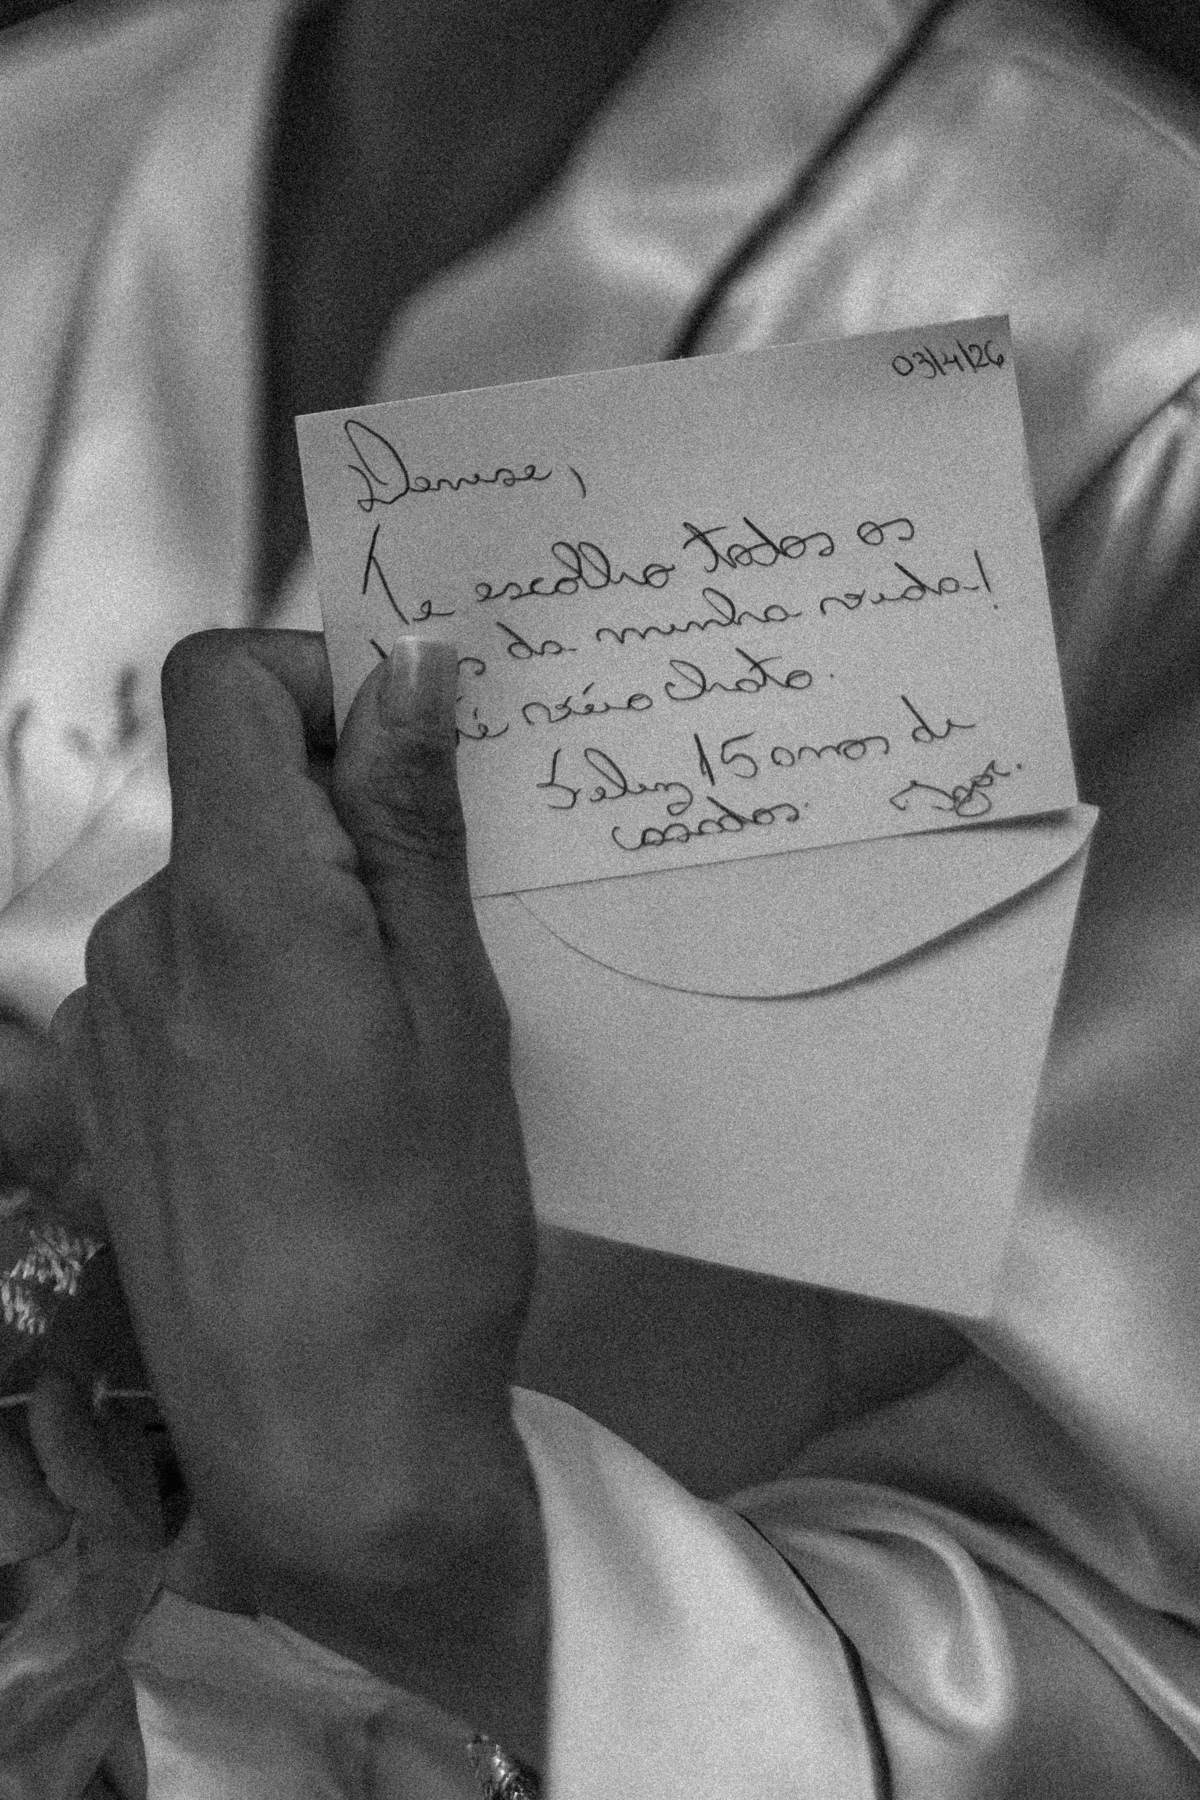 03/4/26
Denise,
Te escolho todos os
da minha vida!
véio chato.
Feliz 15 anos de
casados. Igor.